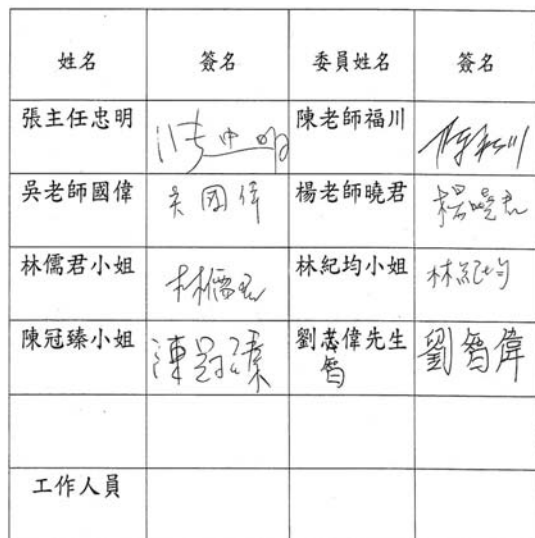 姓名 簽名 委員姓名 簽名
張主任忠明 張忠明 陳老師福川 陳福川
吳老師國偉 吳國偉 楊老師曉君 楊曉君
林儒君小姐 林儒君 林紀均小姐 林紀均
陳冠臻小姐 陳冠臻 劉偉先生 劉智偉
智
工作人員